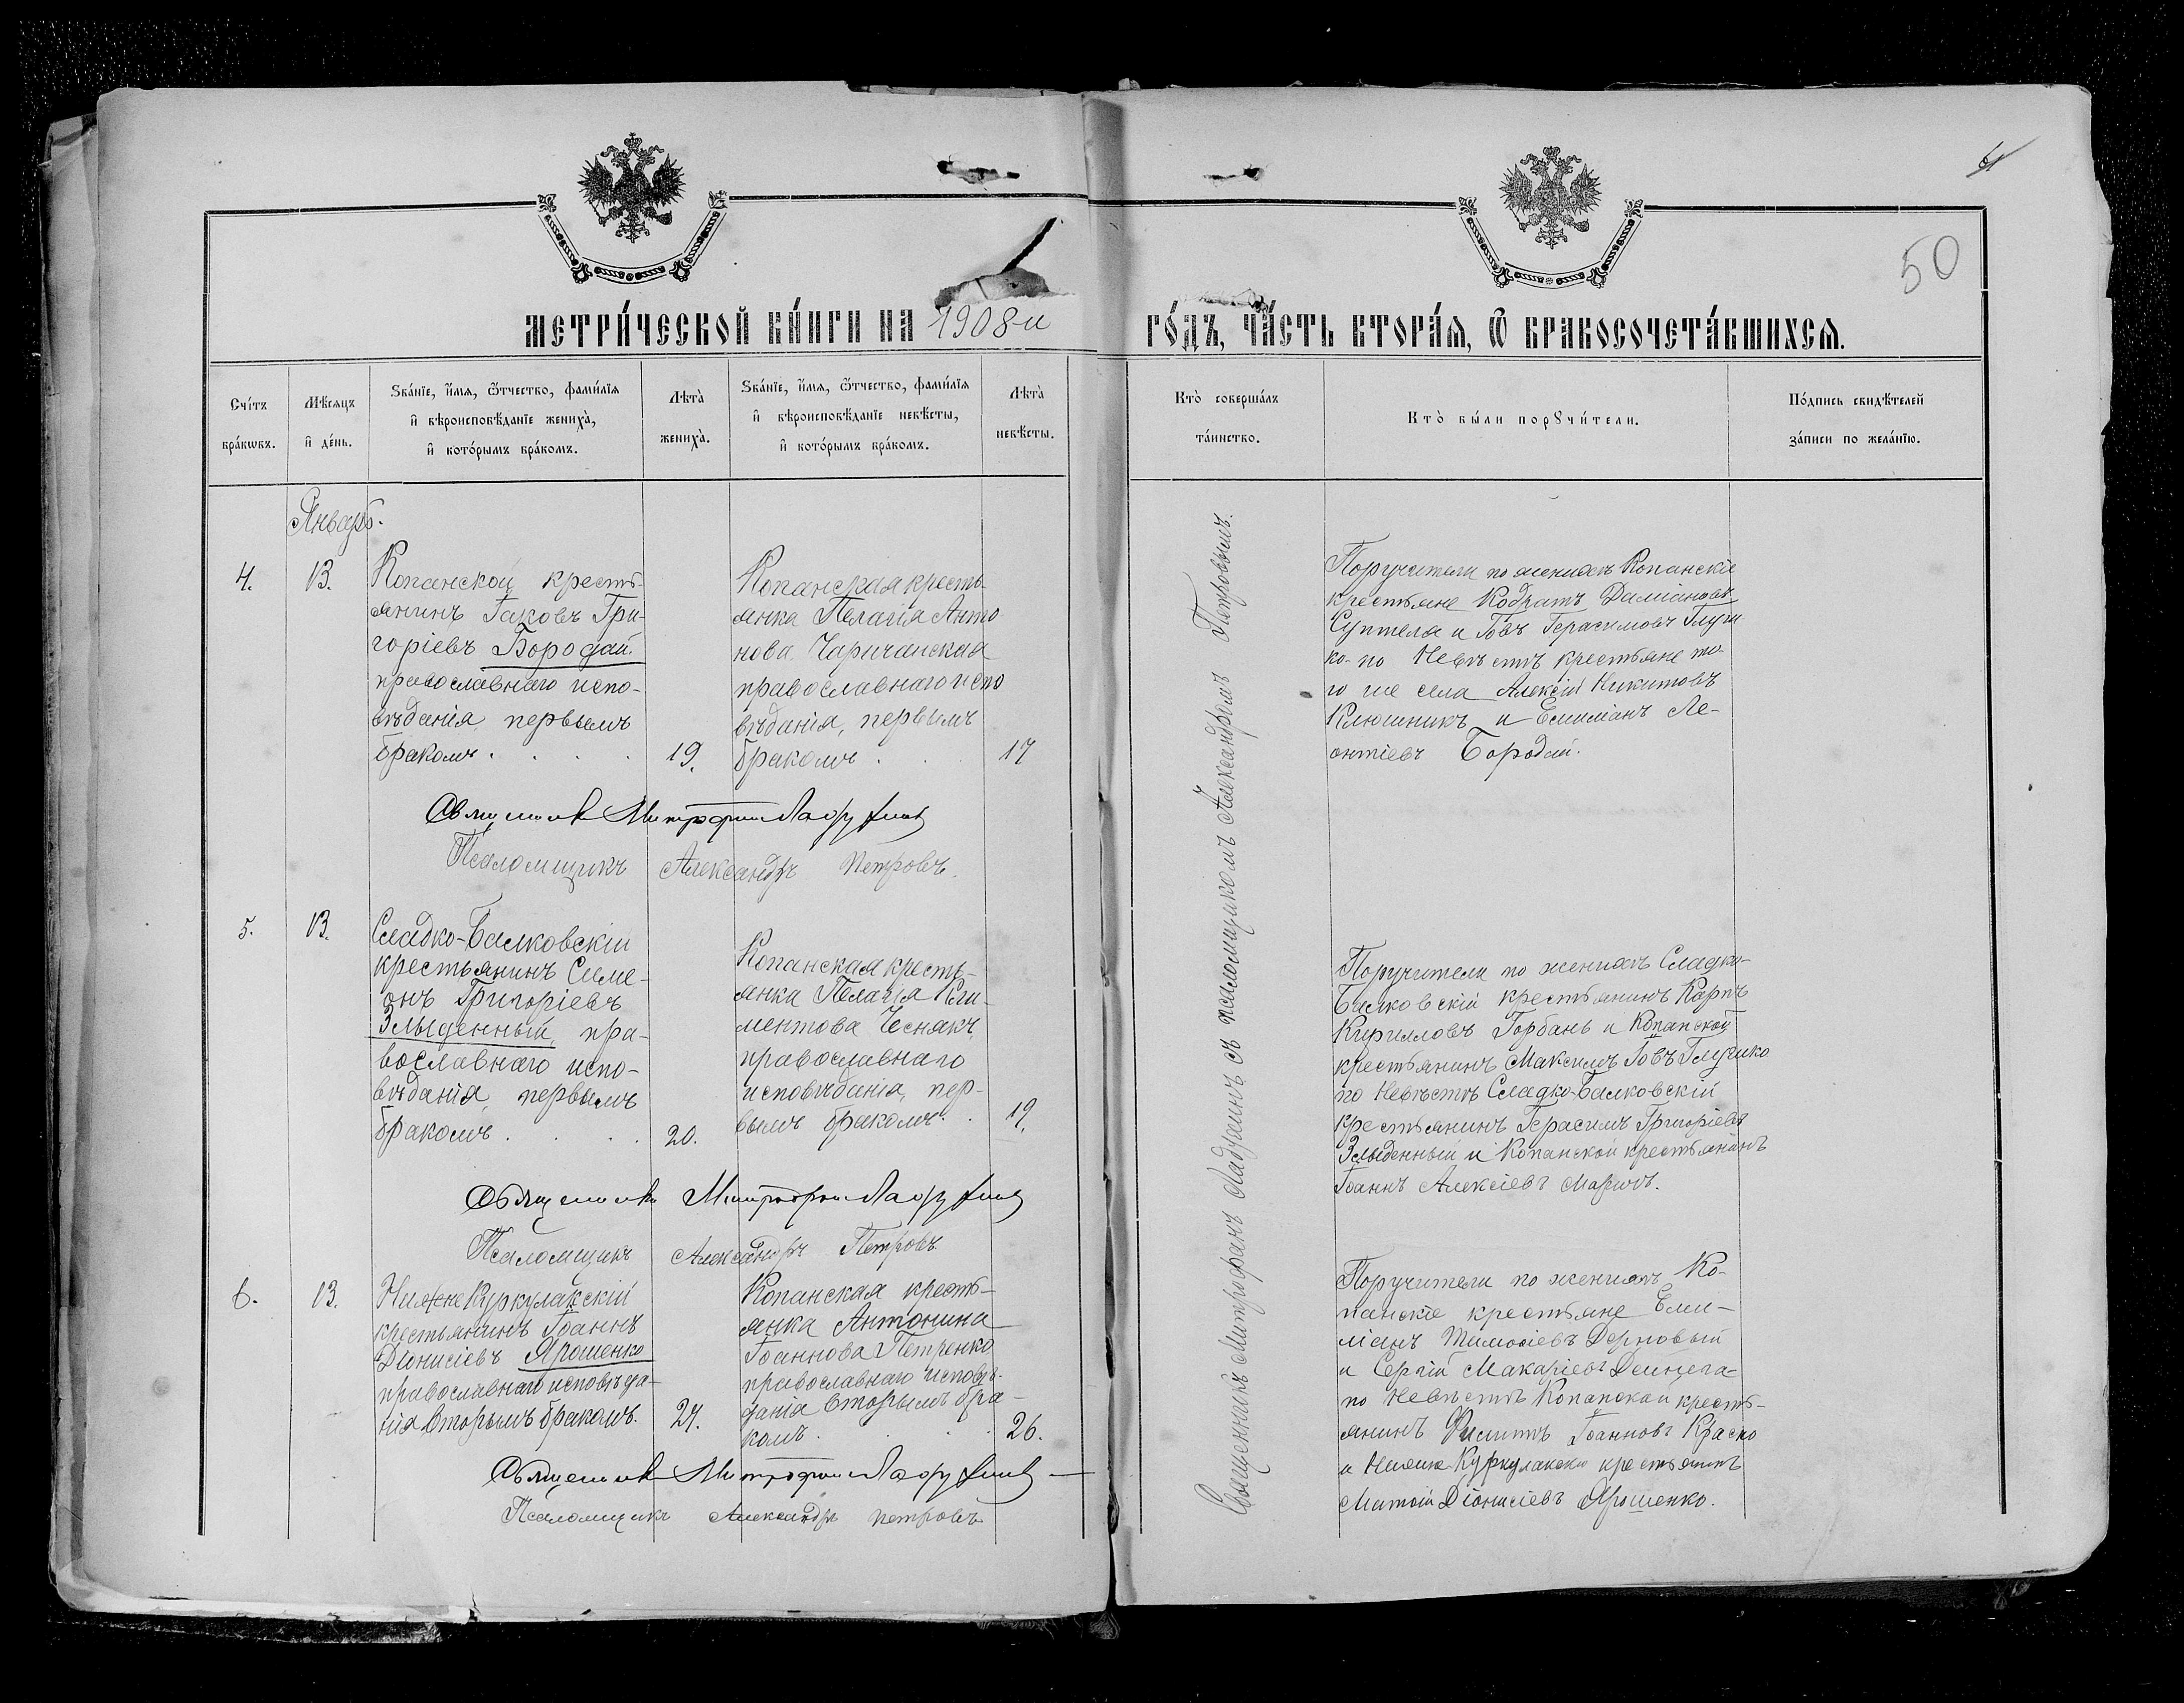 50
МЕТРИ́ЧЕСКОЙ КНИ́ГИ НА 1908-й
ГО́ДЪ, ЧА́СТЬ ВТОРА́Я, Ѿ БРАКОСОЧЕТА́ВШИХСЯ.
Сче́тъ
бра́кѡвъ.
Мѣ́сяцъ
и҆ де́нь.
Ѕва́нїе, и҆́мя, ѻ҆́тчество, фами́лїя
и҆ вѣроисповѣ́данїе жениха̀,
и҆ кото́рымъ бра́комъ.
Лѣта̀
жениха̀.
Ѕва́нїе, и҆́мя, ѻ҆́тчество, фами́лїя
и҆ вѣроисповѣ́данїе невѣ́сты,
и҆ кото́рымъ бра́комъ.
Лѣта̀
невѣ́сты.
Кто̀ соверша́лъ
та́инство.
Кто̀ бы́ли порꙋчи́тели.
По́дпись свидѣ́телей
за́писи по жела́нїю.
Январь.
4.
13.
Копанской кресть-
янинъ Іаковъ Гри-
горіевъ Бородай
православнаго испо-
вѣданія, первымъ
бракомъ . . . .
19.
Копанская кресть-
янка Пелагія Анто-
нова Чаричанская
православнаго испо
вѣданія, первымъ
бракомъ . .
17
Священникъ Митрофанъ
Псаломщикъ Александръ Петровъ.
Поручители по женихѣ Копанскіе
крестьяне Кодратъ Даміановъ
Суптеля и Іовъ Герасимовъ Глущ
ко- по невѣстѣ крестьяне то
го же села Алексій Никитовъ
Клюшникъ и Емиліанъ Ле-
онтіевъ Бородай.
5.
13.
Сладко-Балковскій
крестьянинъ Симе-
онъ Григоріевъ
Злыденный, пра-
вославнаго испо-
вѣданія, первымъ
бракомъ . . . .
20.
Копанская кресть-
янка Пелагія Кли-
ментова Чеснякъ,
православнаго
исповѣданія, пер-
вымъ бракомъ . .
19.
Священникъ Митрофанъ
Псаломщикъ Александръ Петровъ.
Поручители по женихѣ Сладко-
Балковскій крестьянинъ Карпъ
Кирилловъ Горбань и Копанской
крестьянинъ Максимъ Іовъ
по невѣстѣ Сладко-Балковскій
крестьянинъ Герасимъ Григоріевъ
Злыденный и Копанской крестьянинъ
Іоаннъ Алексіевъ
6.
13.
Нижне Куркулакскій
крестьянинъ Іоаннъ
Діонисіевъ Ярошенко
православнаго исповѣда-
нія, вторымъ бракомъ.
27.
Копанская кресть-
янка Антонина
Іоаннова Петренко
православнаго исповѣ-
данія вторымъ бра-
комъ . . . .
26.
Священникъ Митрофанъ
Псаломщикъ Александръ Петровъ
Поручители по женихѣ Ко-
панскіе крестьяне Еми-
ліанъ Тимоѳіевъ
и Сергій Макаріевъ
по невѣстѣ Копанской кресть-
янинъ Филиппъ Іоанновъ
и Нижне Куркулакскій крестьянинъ
Матѳій Діонисіевъ Ярошенко.
Священникъ Митрофанъ съ псаломщикомъ Александромъ Петровымъ.